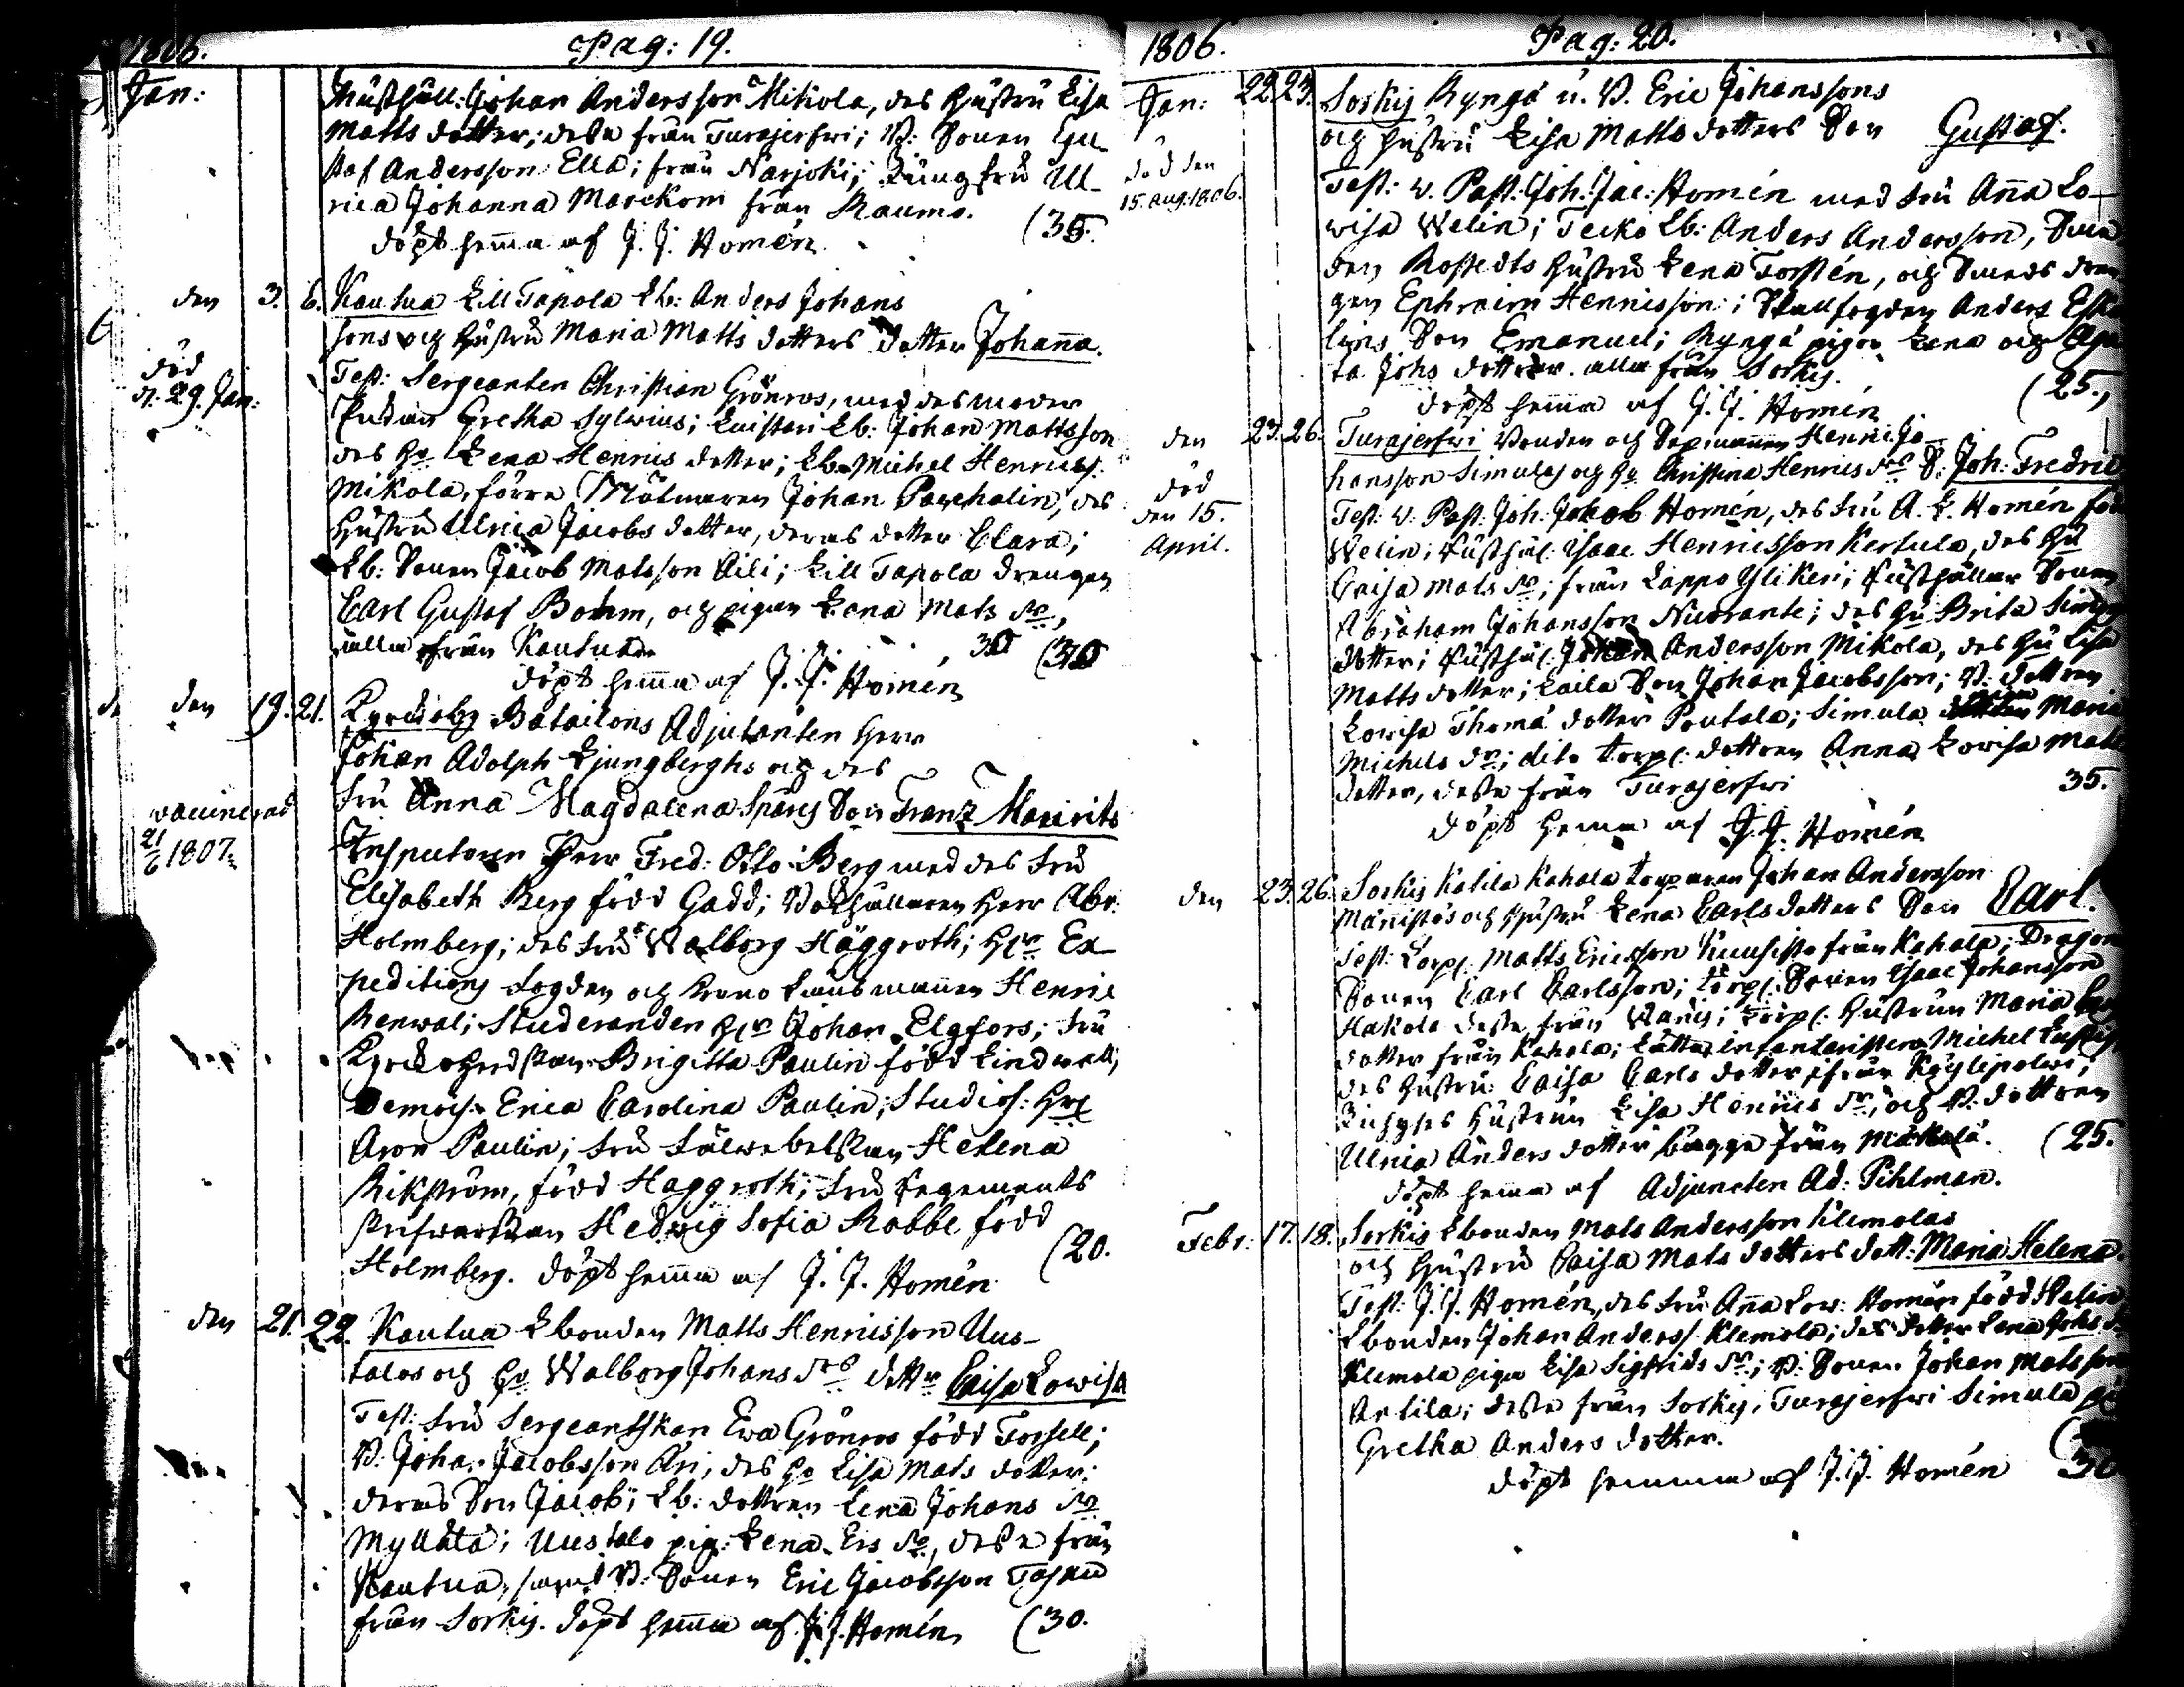 1806.
Pag: 19.
Jan:
Rusthåll: Johan Andersson Mikola, des hustru Lisa
Matts dotter; desse från Turajerfwi; B: Sonen Gu-
staf Andersson Ella; från Narjoki; Jungfru Ul-
rica Johanna Marckom från Raumo.
döpt hemma af J. J. Homén (35.
den 3. 6. Kautua Lill Tapola Lb: Anders Johans
sons och hustru Maria Matts dotters dotter Johanna.
död
d: 29. Jan:
Test: Sergeanten Christian Grönros, med des moder
Gretha Sylwius; Lb: Johan Mattsson
des ho Lena Henrics dotter; Lb: Michel Henrics:
Mikola, förre Johan Paschalin, des
Hustru Ulrica Jacobs dotter, deras dotter Clara;
Lb: Sonen Jacob Matsson Aili; Lill Tapola drengen
Carl Gustaf Bohm, och pigan Lena Mats dr,
alla från Kautua. 30 (30
döpt hemma af J. J. Homén
den 19. 21. Kyrckoby Batailons Adjutanten Herr
Johan Adolph Ljungberghs och des
Fru Anna Magdalena Spåres Son Frantz Mauritz
vaccinerad
21/6 1807.
Inspectoren Herr Fred: Otto Berg med des Fru
Elisabeth Berg född Gadd; Bokhållaren Herr Abr:
Holmberg; des Fru Walborg Häggroth; Hr Ex-
peditions Fogden och Krono Länsmannen Henric
Renwal; Studeranden Hr Johan Elgfors; Fru
Kyrckoherdskan Brigitta Paulin född Lindwall;
Demois: Erica Carolina Paulin; Studios: Hr
Aron Paulin; Fru Fältwebelskan Helena
Rikström, född Haggroth; Fru Regements
skrifwarskan Hedwig Sofia Robbe född
Holmberg. döpt hemma af J. J. Homén (20.
den 21. 22. Kautua Lbonden Matts Henricsson Uus-
talos och ho Walborg Johans drs dottr Caisa Lowisa
Test: Fru Sergeantskan Ewa Grönros född Forsell;
B: Johan Jacobsson Äri, des ho Lisa Mats dotter;
deras Son Jacob; Lb: dottren Lena Johans dr
Myllälä; Uustalo pig: Lena Ers dr, desse från
Kautua, samt B: Sonen Eric Jacobsson Tasku
från Sorkis. döpt hemma af J. J. Homén (30.
1806.
Pag: 20.
Jan: 22. 23. Sorkis Ryngö u. B. Eric Johanssons
och hustru Lisa Matts dotters Son Gustaf.
död den
15. Aug. 1806.
Test: v. Past: Joh: Jac: Homén med Fru Anna Lo-
wisa Welin; Teiko Lb: Anders Andersson,
Rostedts hustru Lena Forstén, och Smeds dren
gen Ephraim Henricsson; Skallfogden Anders
Son Emanuel; Ryngö pigor Lena och
Johs döttrar. alla från Sorkis. (25.
döpt hemma af J. J. Homén
den 23. 26. Turajerfwi Bonden och Henric Jo-
hansson Simulas och ho Christina Henrics drs S: Joh: Fredric
död
den 15.
April.
Test: v: Past: Joh: Jakob Homén, des Fru A. L. Homén född
Welin; Rusthål: Isaac Henricsson Kertula, des hu
Caisa Mats dr; från Lappo Ylikeri; Rusthållar Sonen
Abraham Johansson Nuorante; des hu Brita
dotter; Rusthål: Johan Andersson Mikola, des hu Lisa
Matts dotter; Laila Son Johan Jacobsson; B: dottren
Lowisa Thoma dotter Poutala; Simula Maria
Michels dr; dito torp: dottren Anna Lowisa Mats
dotter, desse från Turajerfwi 35.
döpt hemma af J. J. Homén
den 23. 26. Sorkis Katila Kahala torparen Johan Andersson
Männistös och hustru Lena Carls dotters Son Carl.
Test: Torp: Matts Ericsson Kuusisto från Kahala; Dragon
Sonen Carl Carlsson; torp: Sonen Isaac Johansson
Hakola desse från Wanis; torp: hustrun Maria
dotter från Kahala; Lätta infanteristen Michel
des hustru: Caisa Carls dotter, från Köylipolwi;
hustrun Lisa Henrics dr; och B: dottren
Ulrica Anders dotter bägge från Mäkelä. (25.
döpt hemma af Adjuncten Ad: Pihlman.
Febr: 17. 18. Sorkis Lbonden Mats Andersson Klemolas
och hustru Caisa Mats dotters dott: Maria Helena.
Test: J. J. Homén, des Fru Anna Low: Homén född Welin
Lbonden Johan Anderss: Klemola; des dotter Lena Johs dr
Klemola piga Lisa Sigfrids dr; B: Sonen Johan Matsson
Antila; desse från Sorkis; Turajerfwi Simula
Gretha Anders dotter.
döpt hemma af J. J. Homén (30